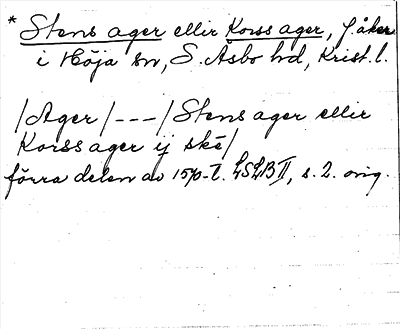 * Stens ager ellir Korss ager, f. åker
i Höja sn, S. Åsbo hd, Krist. l.
/Ager/---/Stens ager ellir
Korss ager ij skē/
förra delen av 1570-t. LSLB II, s. 2. orig.